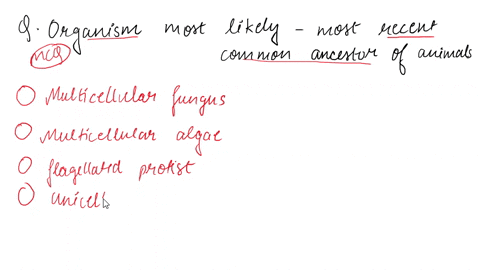 Q. Organism most likely - most recent
MCQ common ancestor of animals
Multicellular fungus
Multicellular algae
flagellated protist
unicell